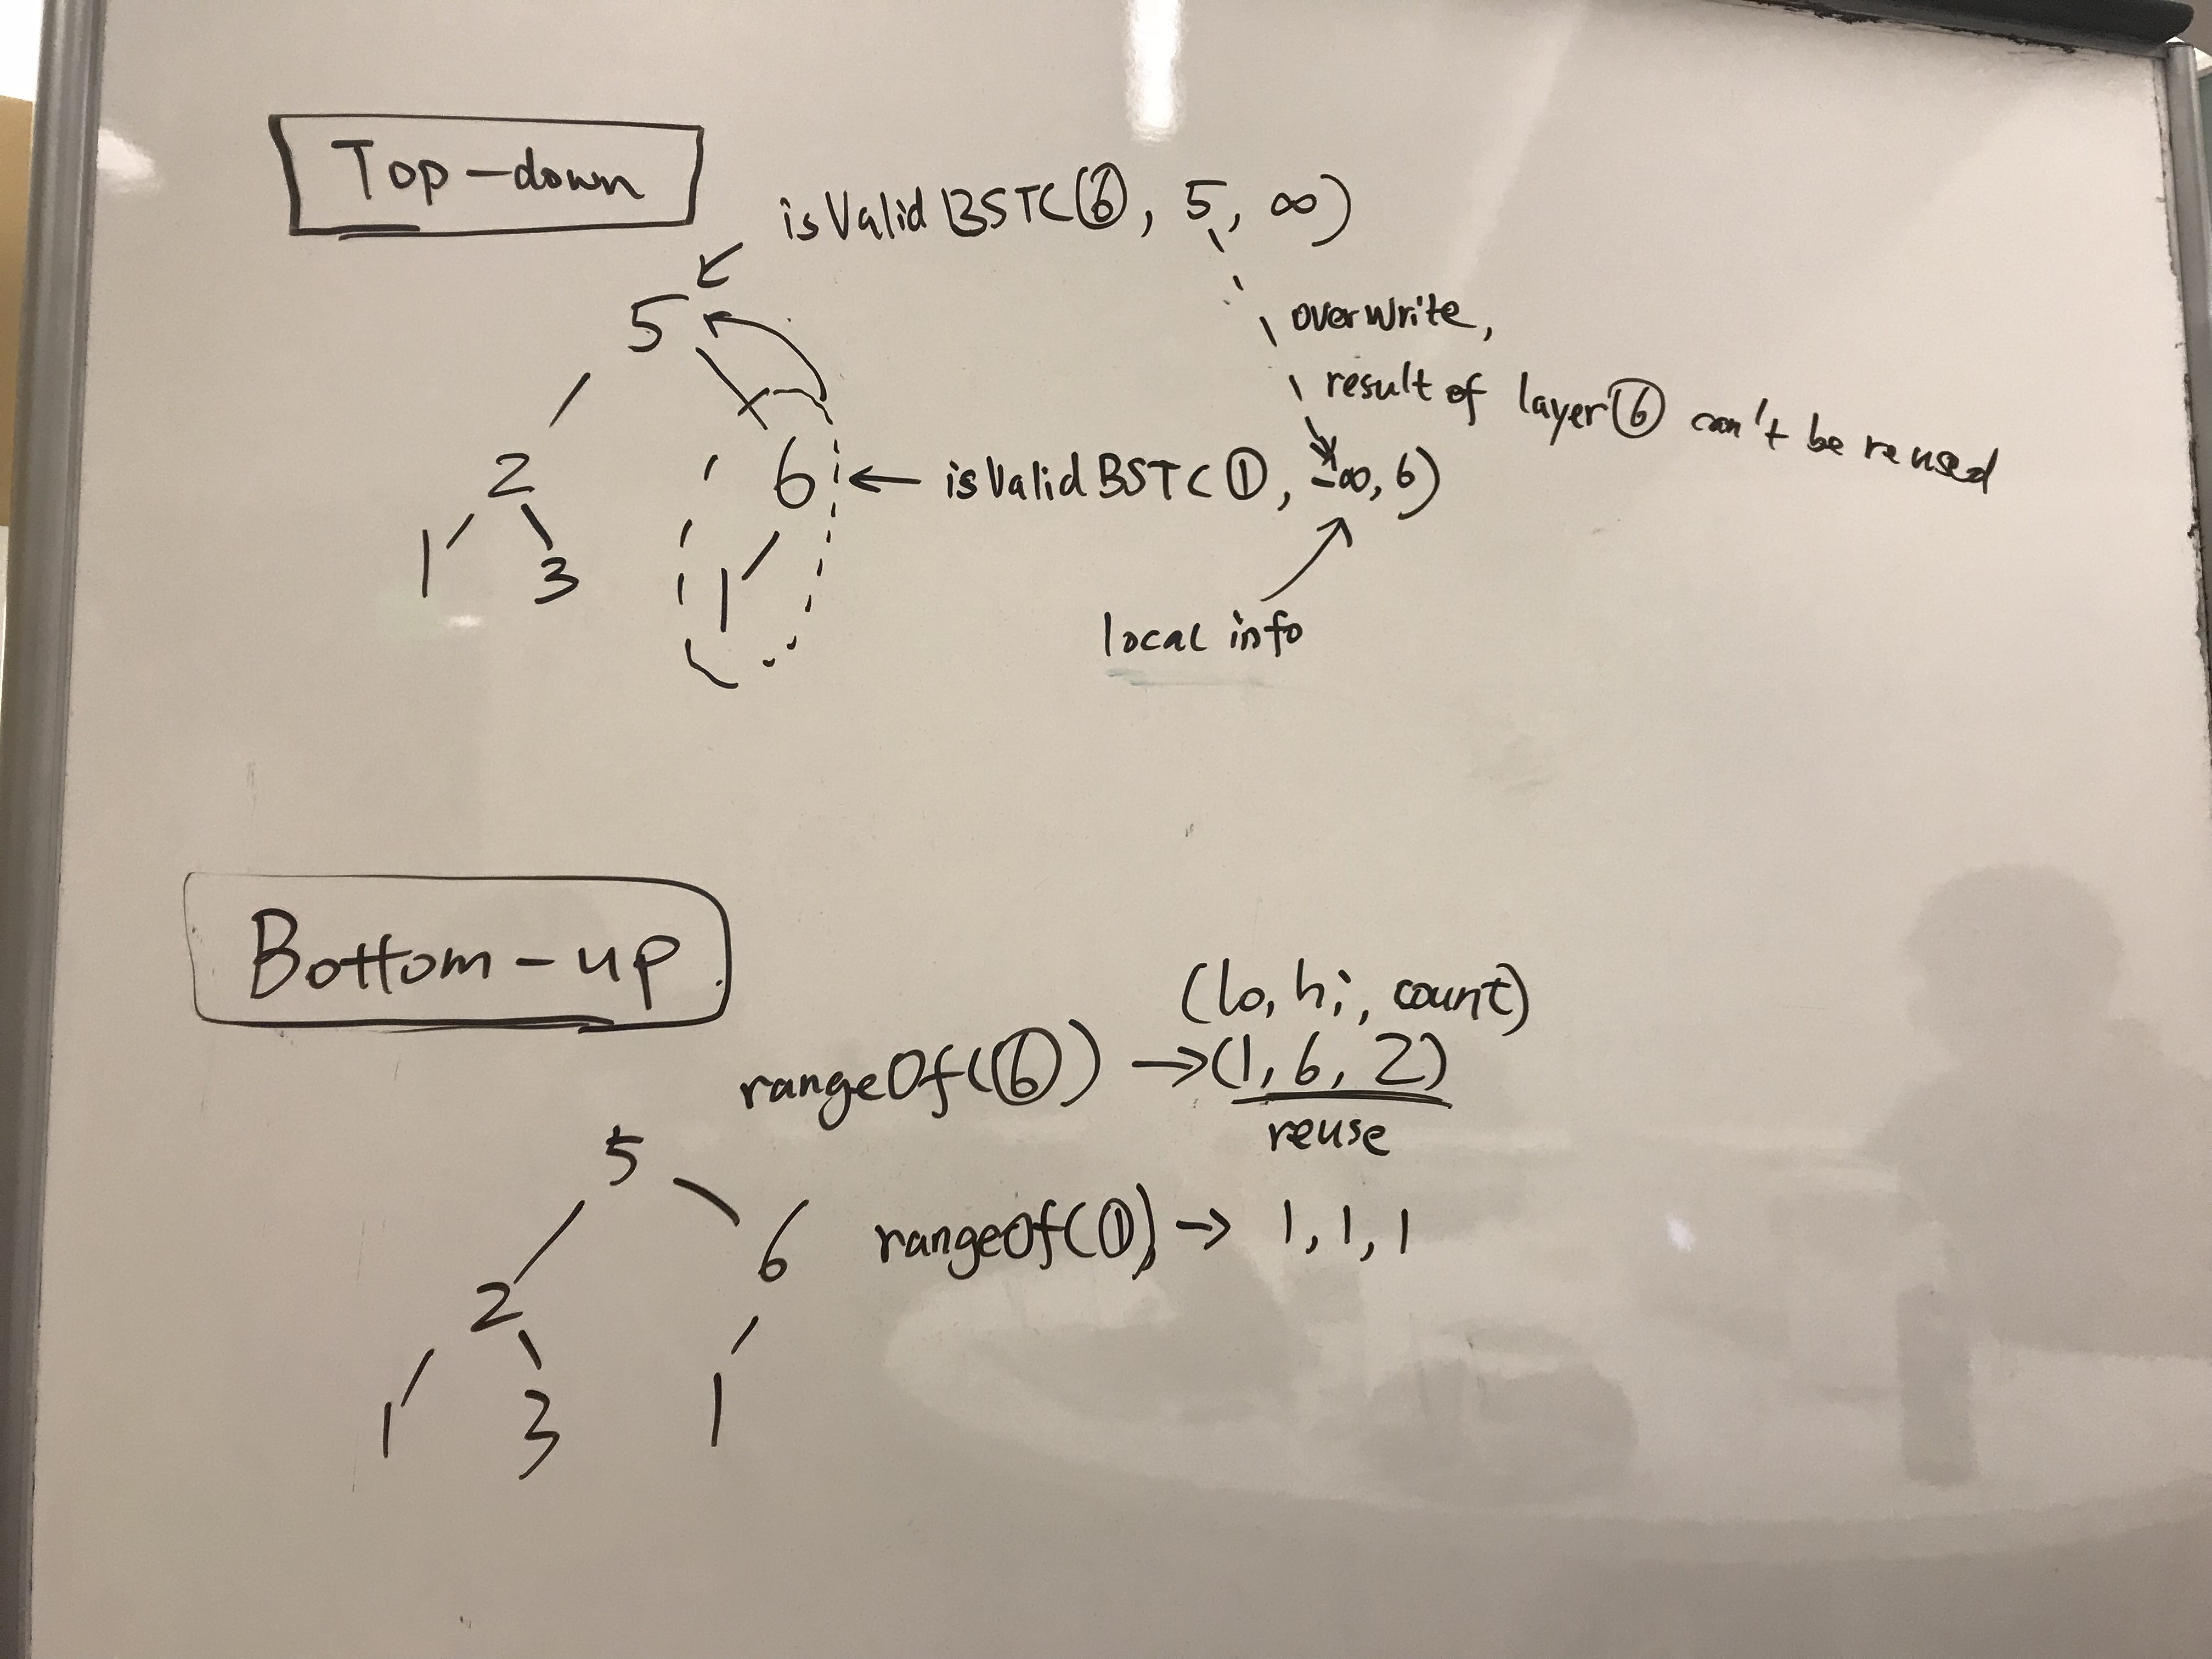 Top-down
isValidBST(⑥, 5, ∞)
5
overwrite,
result of layer⑥ can't be reused
2 6 ← isValidBST(①, -∞, 6)
1 3 1
local info
Bottom-up
(lo, hi, count)
rangeOf(⑥) → (1, 6, 2)
reuse
5
6 rangeOf(①) → 1, 1, 1
2
1 3 1